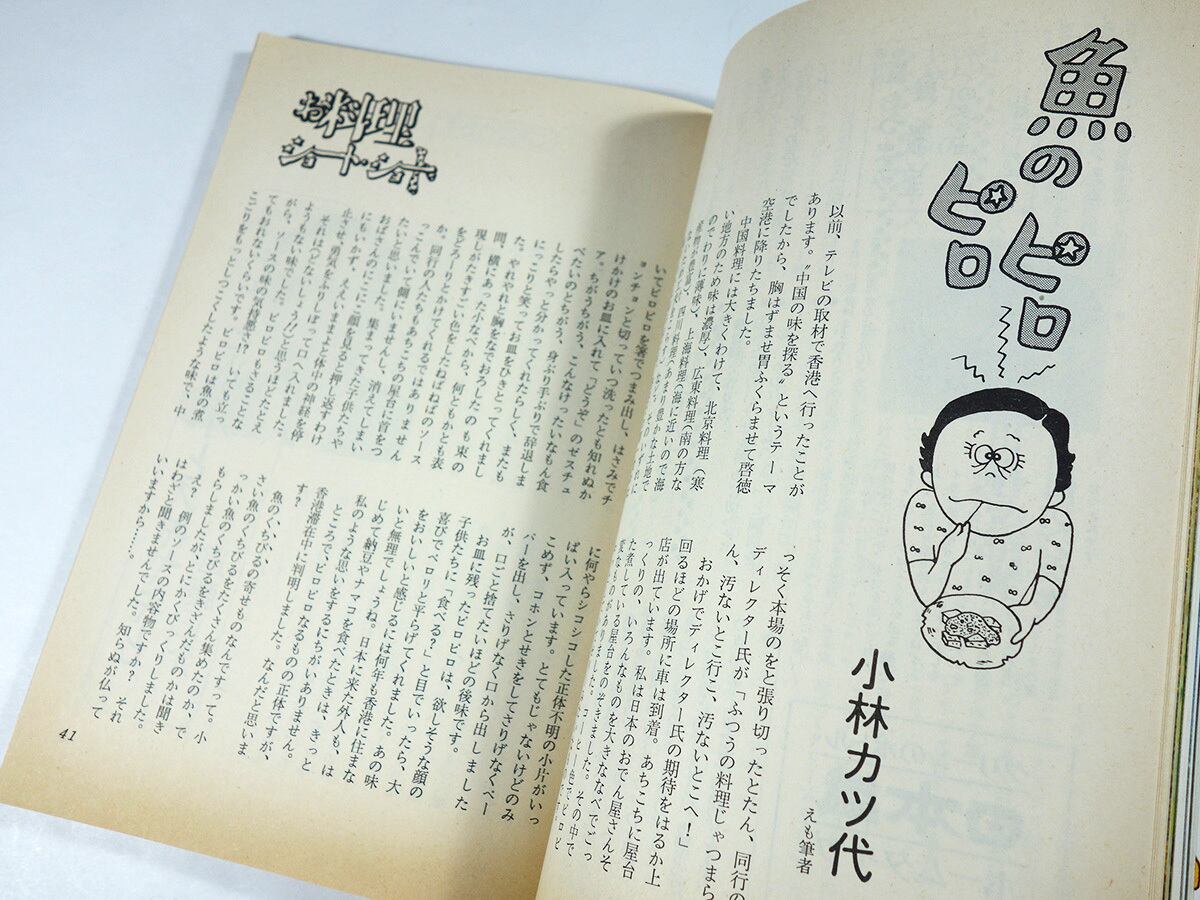 魚の
ピロ
ピロ
小林カツ代
えも筆者
以前、テレビの取材で香港へ行ったことが
あります。“中国の味を探る”というテーマ
でしたから、胸はずませ胃ふくらませて啓徳
空港に降りたちました。
中国料理には大きくわけて、北京料理(寒
い地方のため味は濃厚)、広東料理(南の方な
のでわりに薄味)、上海料理(海に近いので海
四川料理(あまり豊かな土地で
っそく本場のをと張り切ったとたん、同行の
ディレクター氏が「ふつうの料理じゃつまら
ん、汚ないとこ行こ、汚ないとこへ!」
おかげでディレクター氏の期待をはるか上
回るほどの場所に車は到着。あちこちに屋台
店が出ています。私は日本のおでん屋さんそ
っくりの、いろんなものを大きななべでごっ
た煮している屋台をのぞきました。その中で
お料理
ショート・ショート
いてピロピロを箸でつまみ出し、はさみでチ
ョンチョンと切っていつ洗ったとも知れぬか
けかけのお皿に入れて「どうぞ」のゼスチュ
ア。ちがうちがう、こんなけったいなもん食
べたいのとちがう、身ぶり手ぶりで辞退しま
したらやっと分かってくれたらしく、またも
にっこりと笑ってお皿をひきとってくれまし
た。やれやれと胸をなでおろしたのも束の
間、横にあった小なべから、何ともかとも表
現しがたきすごい色をしたねばねばのソース
をどろーりとかけてくれるではありませんか。
か、同行の人たちもあちこちの屋台に首をつ
っこんでいて側にいません。
たいと思いました。集まってきた子供たちや
おばさんの
にもいかず、ここに
止させ、勇気をふりしぼって口へ入れました。
それは「どないしょう!」と思うほどたとえ
ようもない味でした。ピロピロもさることな
がら、ソースの味の気持悪さ!?いても立っ
てもおれないくらいです。ピロピロは魚の煮
こごりをもっとしつこくしたような味で、中
に何やらシコシコした正体不明の小片がいっ
ぱい入っています。とてもじゃないけどのみ
こめず、コホンとせきをしてさりげなくペー
パーを出し、さりげなく口から出しました
が、口ごと捨てたいほどの後味です。
お皿に残ったピロピロは、欲しそうな顔の
子供たちに「食べる?」と目でいったら、大
喜びでペロリと平らげてくれました。あの味
をおいしいと感じるには何年も香港に住まな
いと無理でしょうね。日本に来た外人も、は
じめて納豆やナマコを食べたときは、きっと
私のような思いをするにちがいありません。
ところで、ピロピロなるものの正体ですが、
香港滞在中に判明しました。なんだと思いま
す?
魚のくちびるの寄せものなんですって。小
さい魚のくちびるをたくさん集めたのか、で
っかい魚のくちびるをきざんだものかは聞き
もらしましたが、とにかくびっくりしました。
え? 例のソースの内容物ですか? それ
はわざと聞きませんでした。知らぬが仏って
いいますから……。
41